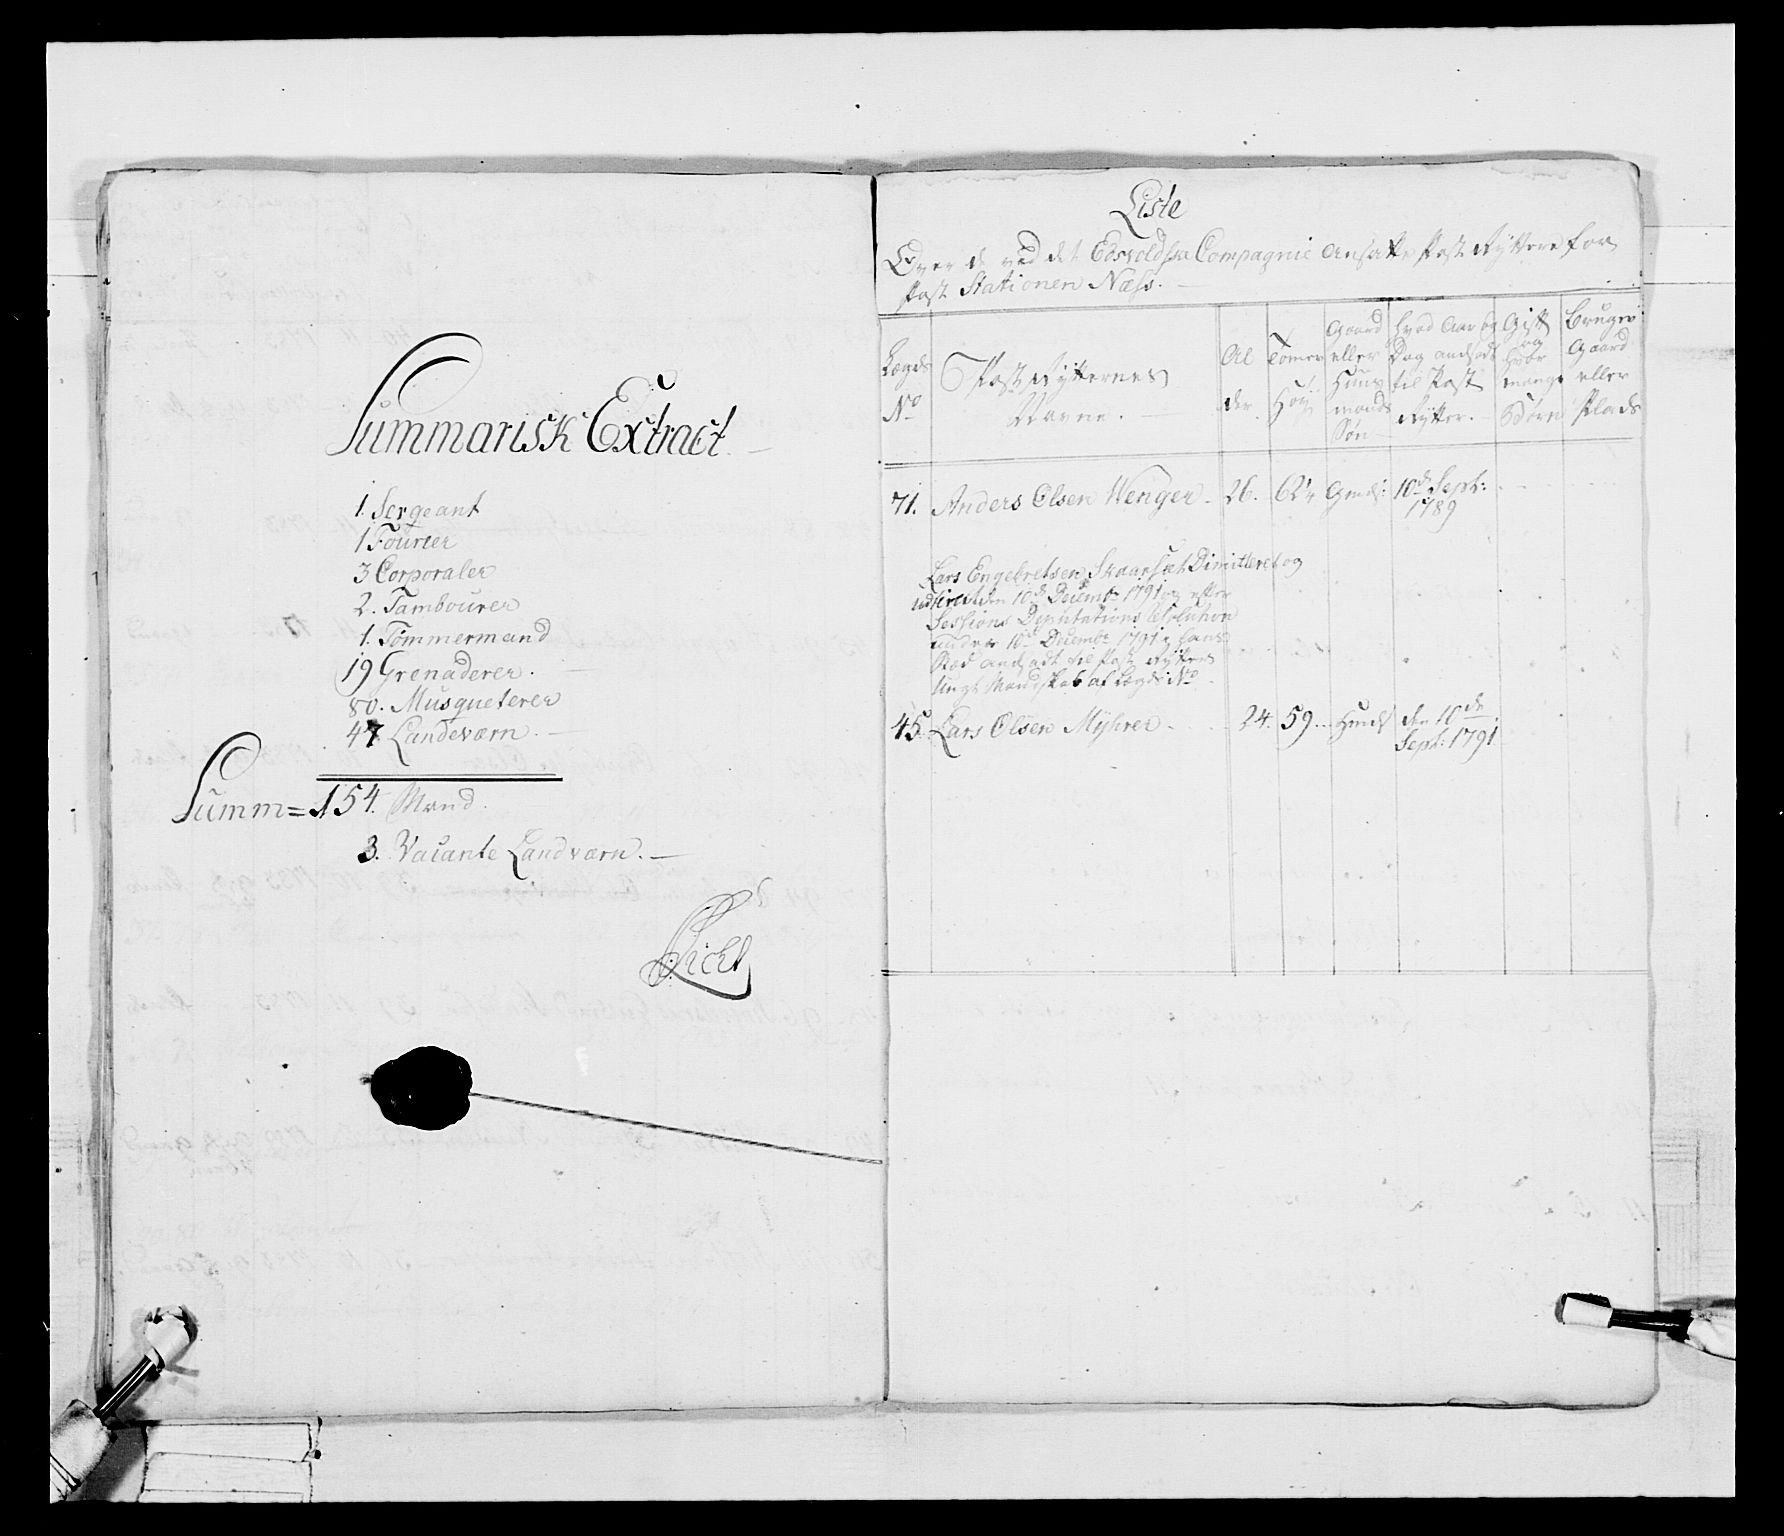 Summarisk Extract
1. Sergeant
1 Fourier
3 Corporaler
2. Tambourer
1. Tömmermand
19 Grenaderer.
80. Musqueterer
47 Landeværn.
Summ = 154. Mand.
3. Vacante Landværn.
Liste
Over de ved det Edsvoldske Compagnie ansatte Post Ryttere for
Post Stationen Næss.
Lægds No
Post Rytternes Navne.
Al der.
Tomer Höy
Gaard eller Huus mands Sön
Hvad Aar og Dag andsadt til Post Rytter.
Gift og Hvor mange Börn
Bruger Gaard eller Plads
71. Anders Olsen Wenger 26. 62 1/4 Gmds: 10de Sept: 1789
Lars Engebretsen Skaarset Dimitteret og
udslettet den 10de Decemb: 1791 og efter
Sessions Deputations Resolution
under 10de Decembr 1791 i hans
Sted andsadt til Post Rytter
Ungt Mandskab af Lægds No
45. Lars Olsen Myhrer 24. 59. Hmds den 10de
Sept: 1791